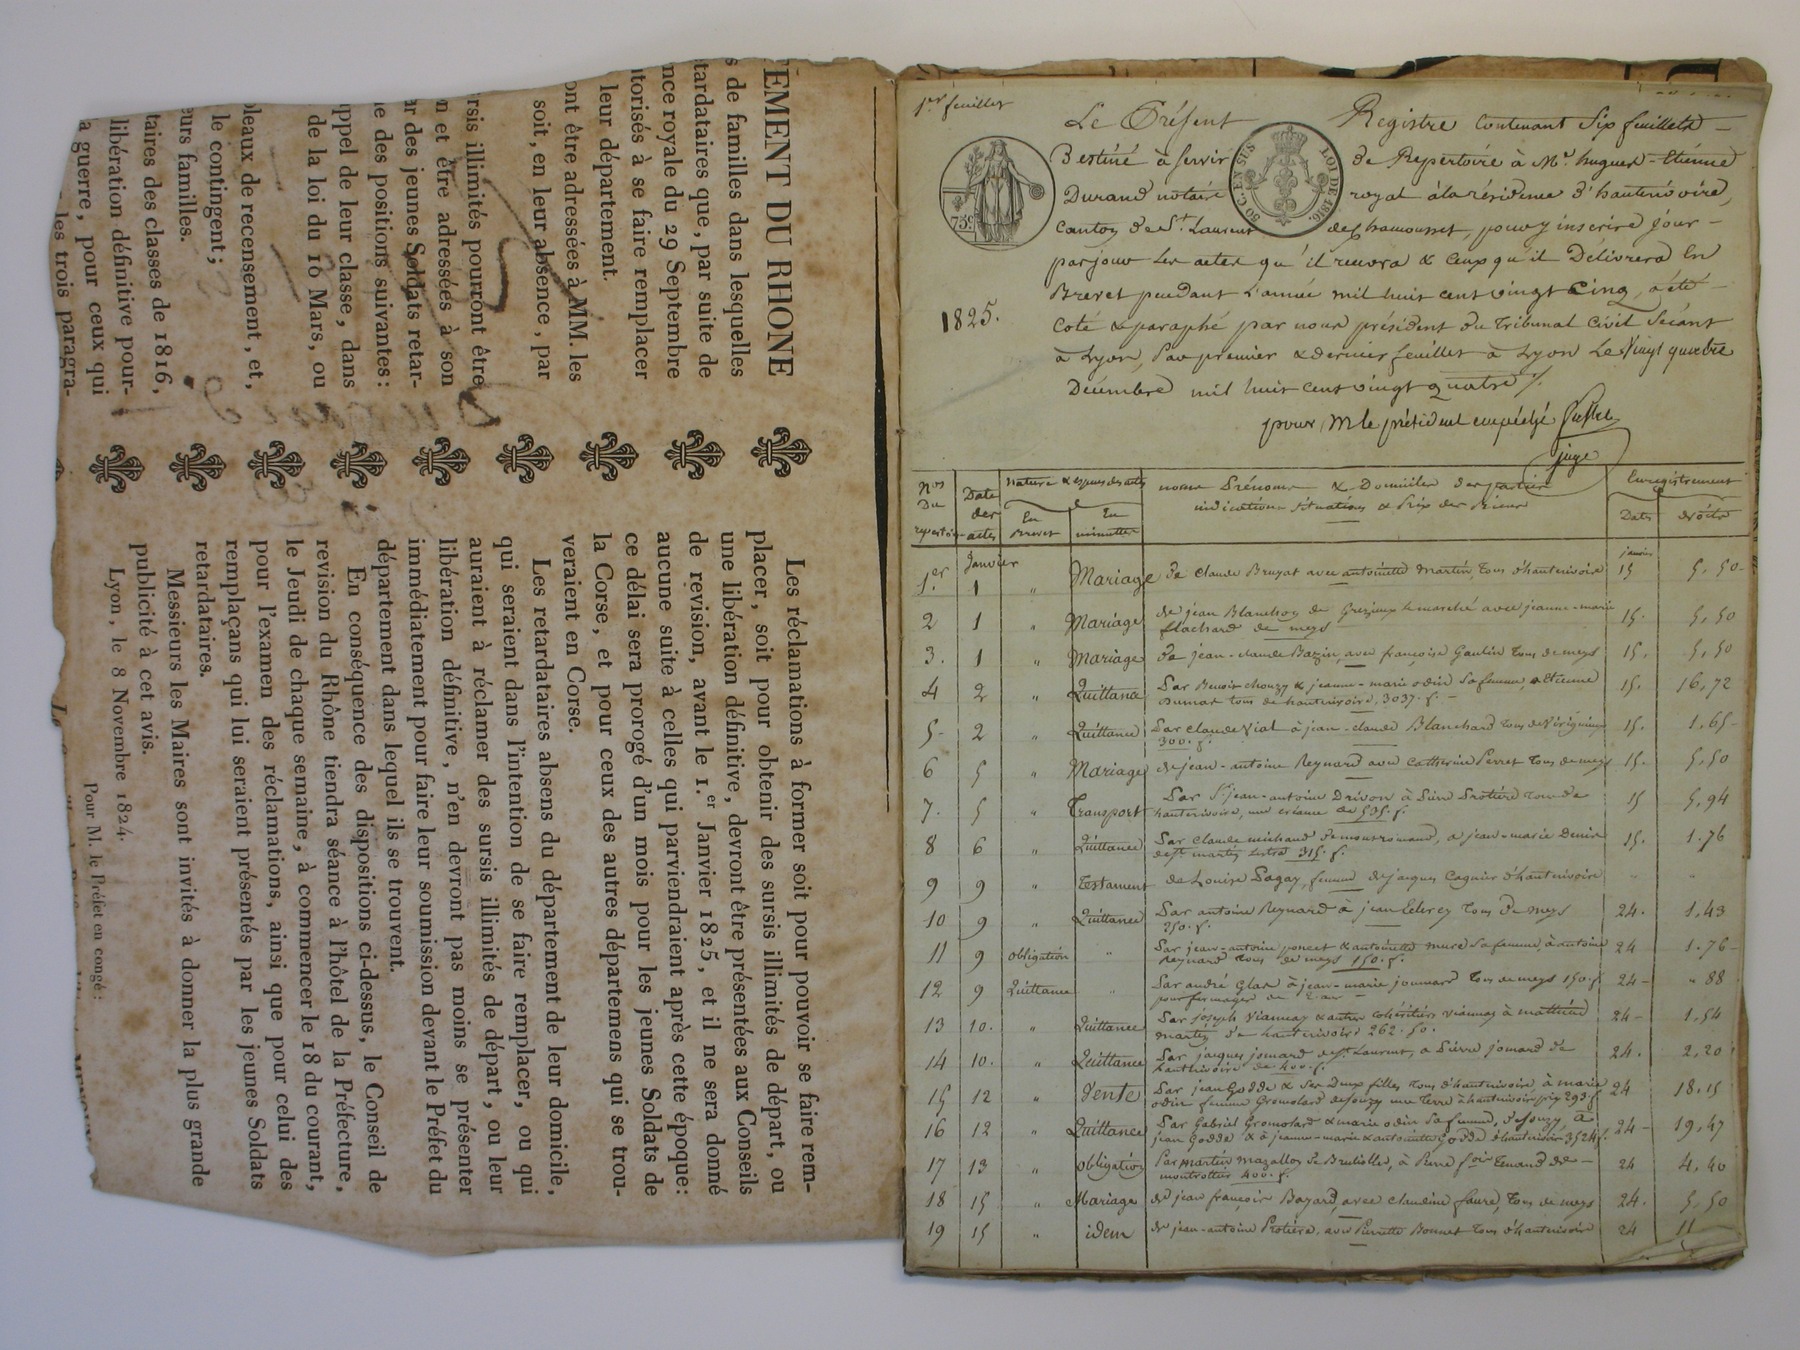 TEMENT DU RHONE
s de familles dans lesquelles
tardataires que, par suite de
nce royale du 29 Septembre
ntorisés à se faire remplacer
leur département.
ont être adressées à MM. les
soit, en leur absence, par
rsis illimités pourront être
n et être adressées à son
ar des jeunes Soldats retar-
ne des positions suivantes:
appel de leur classe, dans
de la loi du 10 Mars, ou
bleaux de recensement, et,
le contingent;
eurs familles.
taires des classes de 1816,
libération définitive pour-
a guerre, pour ceux qui
les trois paragra-
Les réclamations à former soit pour pouvoir se faire rem-
placer, soit pour obtenir des sursis illimités de départ, ou
une libération définitive, devront être présentées aux Conseils
de revision, avant le 1.er Janvier 1825, et il ne sera donné
aucune suite à celles qui parviendraient après cette époque:
ce délai sera prorogé d'un mois pour les jeunes Soldats de
la Corse, et pour ceux des autres départemens qui se trou-
veraient en Corse.
Les retardataires absens du département de leur domicile,
qui seraient dans l'intention de se faire remplacer, ou qui
auraient à réclamer des sursis illimités de départ, ou leur
libération définitive, n'en devront pas moins se présenter
immédiatement pour faire leur soumission devant le Préfet du
département dans lequel ils se trouvent.
En conséquence des dispositions ci-dessus, le Conseil de
revision du Rhône tiendra séance à l'hôtel de la Préfecture,
le Jeudi de chaque semaine, à commencer le 18 du courant,
pour l'examen des réclamations, ainsi que pour celui des
remplaçans qui lui seraient présentés par les jeunes Soldats
retardataires.
Messieurs les Maires sont invités à donner la plus grande
publicité à cet avis.
Lyon, le 8 Novembre 1824.
Pour M. le Préfet en congé:
1er feuillet
Le Présent Registre Contenant Six feuillets
Destiné à servir de Repertoire à Me hugues-Etienne
Durand notaire royal à la résidence d'hauterivoire,
Canton de St. Laurent de Chamousset, pour y inscrire jour-
par jour les actes qu'il recevra & Ceux qu'il Délivrera En
Brevet pendant l'année mil huit cent vingt Cinq, a été
Coté & paraphé par nous président du Tribunal Civil Séant
à Lyon, Par premier & dernier feuillet à Lyon Le Vingt quatre
Décembre mil huit cent vingt quatre
pour M le président empêché
juge
75.c
50 C. EN SUS
LOI DE 1816.
1825.
Nos Du repertoire
Date des actes
nature & especes des actes
En Brevet
En minuttes
noms Prénoms & Domiciles des parties
indications Situations & Prix des Biens
Enregistrement
Dates
droits
Janvier
janvier
1er. 1 " Mariage de Claude Bruyat avec antoinette martin, tous d'hauterivoire 15 5,50
2 1 " Mariage de jean Blanchon de Grezieux le marché avec jeanne-marie 15. 5,50
flachard de meys
3. 1 " Mariage de jean-claude Bazin, avec françoise Gaulin tous de meys 15. 5,50
4 2 " Quittance Par Benoit chouzy & jeanne-marie odin Sa femme, a Etienne 15. 16,72
Dumas tous de hauterivoire, 3037. f.
5 2 " Quittance Par Claude Vial à jean-claude Blanchard tous de Virigneux 15. 1.65
300. f.
6 5 " Mariage de jean-antoine Reynard avec Catherine Perret tous de meys 15. 5,50
7. 5 " Transport Par Sr jean-antoine Drivon à Pierre Protière tous de 15 5,94
hauterivoire, une créance de 535. f.
8 6 " Quittance Par Claude michaud de montromand, a jean-marie Denis 15. 1.76
de St martin 315. f.
9 9 " Testament de Louise Pagay, femme de jacques Cagnier d'hauterivoire " "
10 9 " Quittance Par antoine Reynard à jean tous de meys 24. 1,43
250. f.
11 9 obligation " Par jean-antoine poncet & antoinette mure Sa femme, à antoine 24 1.76
Reynard tous de meys 150. f.
12 9 Quittance " Par andré Glas à jean-marie joannard tous de meys 150. f 24 " 88
pour fermages de 2 ans
13 10. " Quittance Par joseph Viannay & autres cohéritiers viannay à mathieu 24 1.54
martin de hauterivoire 262. 50.
14 10. " Quittance Par jacques jomard de St Laurent, a Pierre jomard de 24. 2,20
hauterivoire de 400. f.
15 12 " Vente Par jean Godde & Ses Deux filles tous d'hauterivoire, à marie 24 18.15
odin femme Gromolard de souzy une Terre à hauterivoire prix 293. f
16 12 " Quittance Par Gabriel Gromolard & marie odin Sa femme, de souzy, à 24 19,47
jean Godde & à jeanne-marie & antoinette Godde d'hauterivoire 3524 f.
17 13 " obligation Par martin mazallon de Brulioles, à Pierre 24 4,40
montrottier 400. f.
18 15 " Mariage de jean françois Bazard, avec claudine faure, tous de meys 24. 5,50
19 15 " idem de jean-antoine Protière, avec Pierrette Bonnet tous d'hauterivoire 24 11